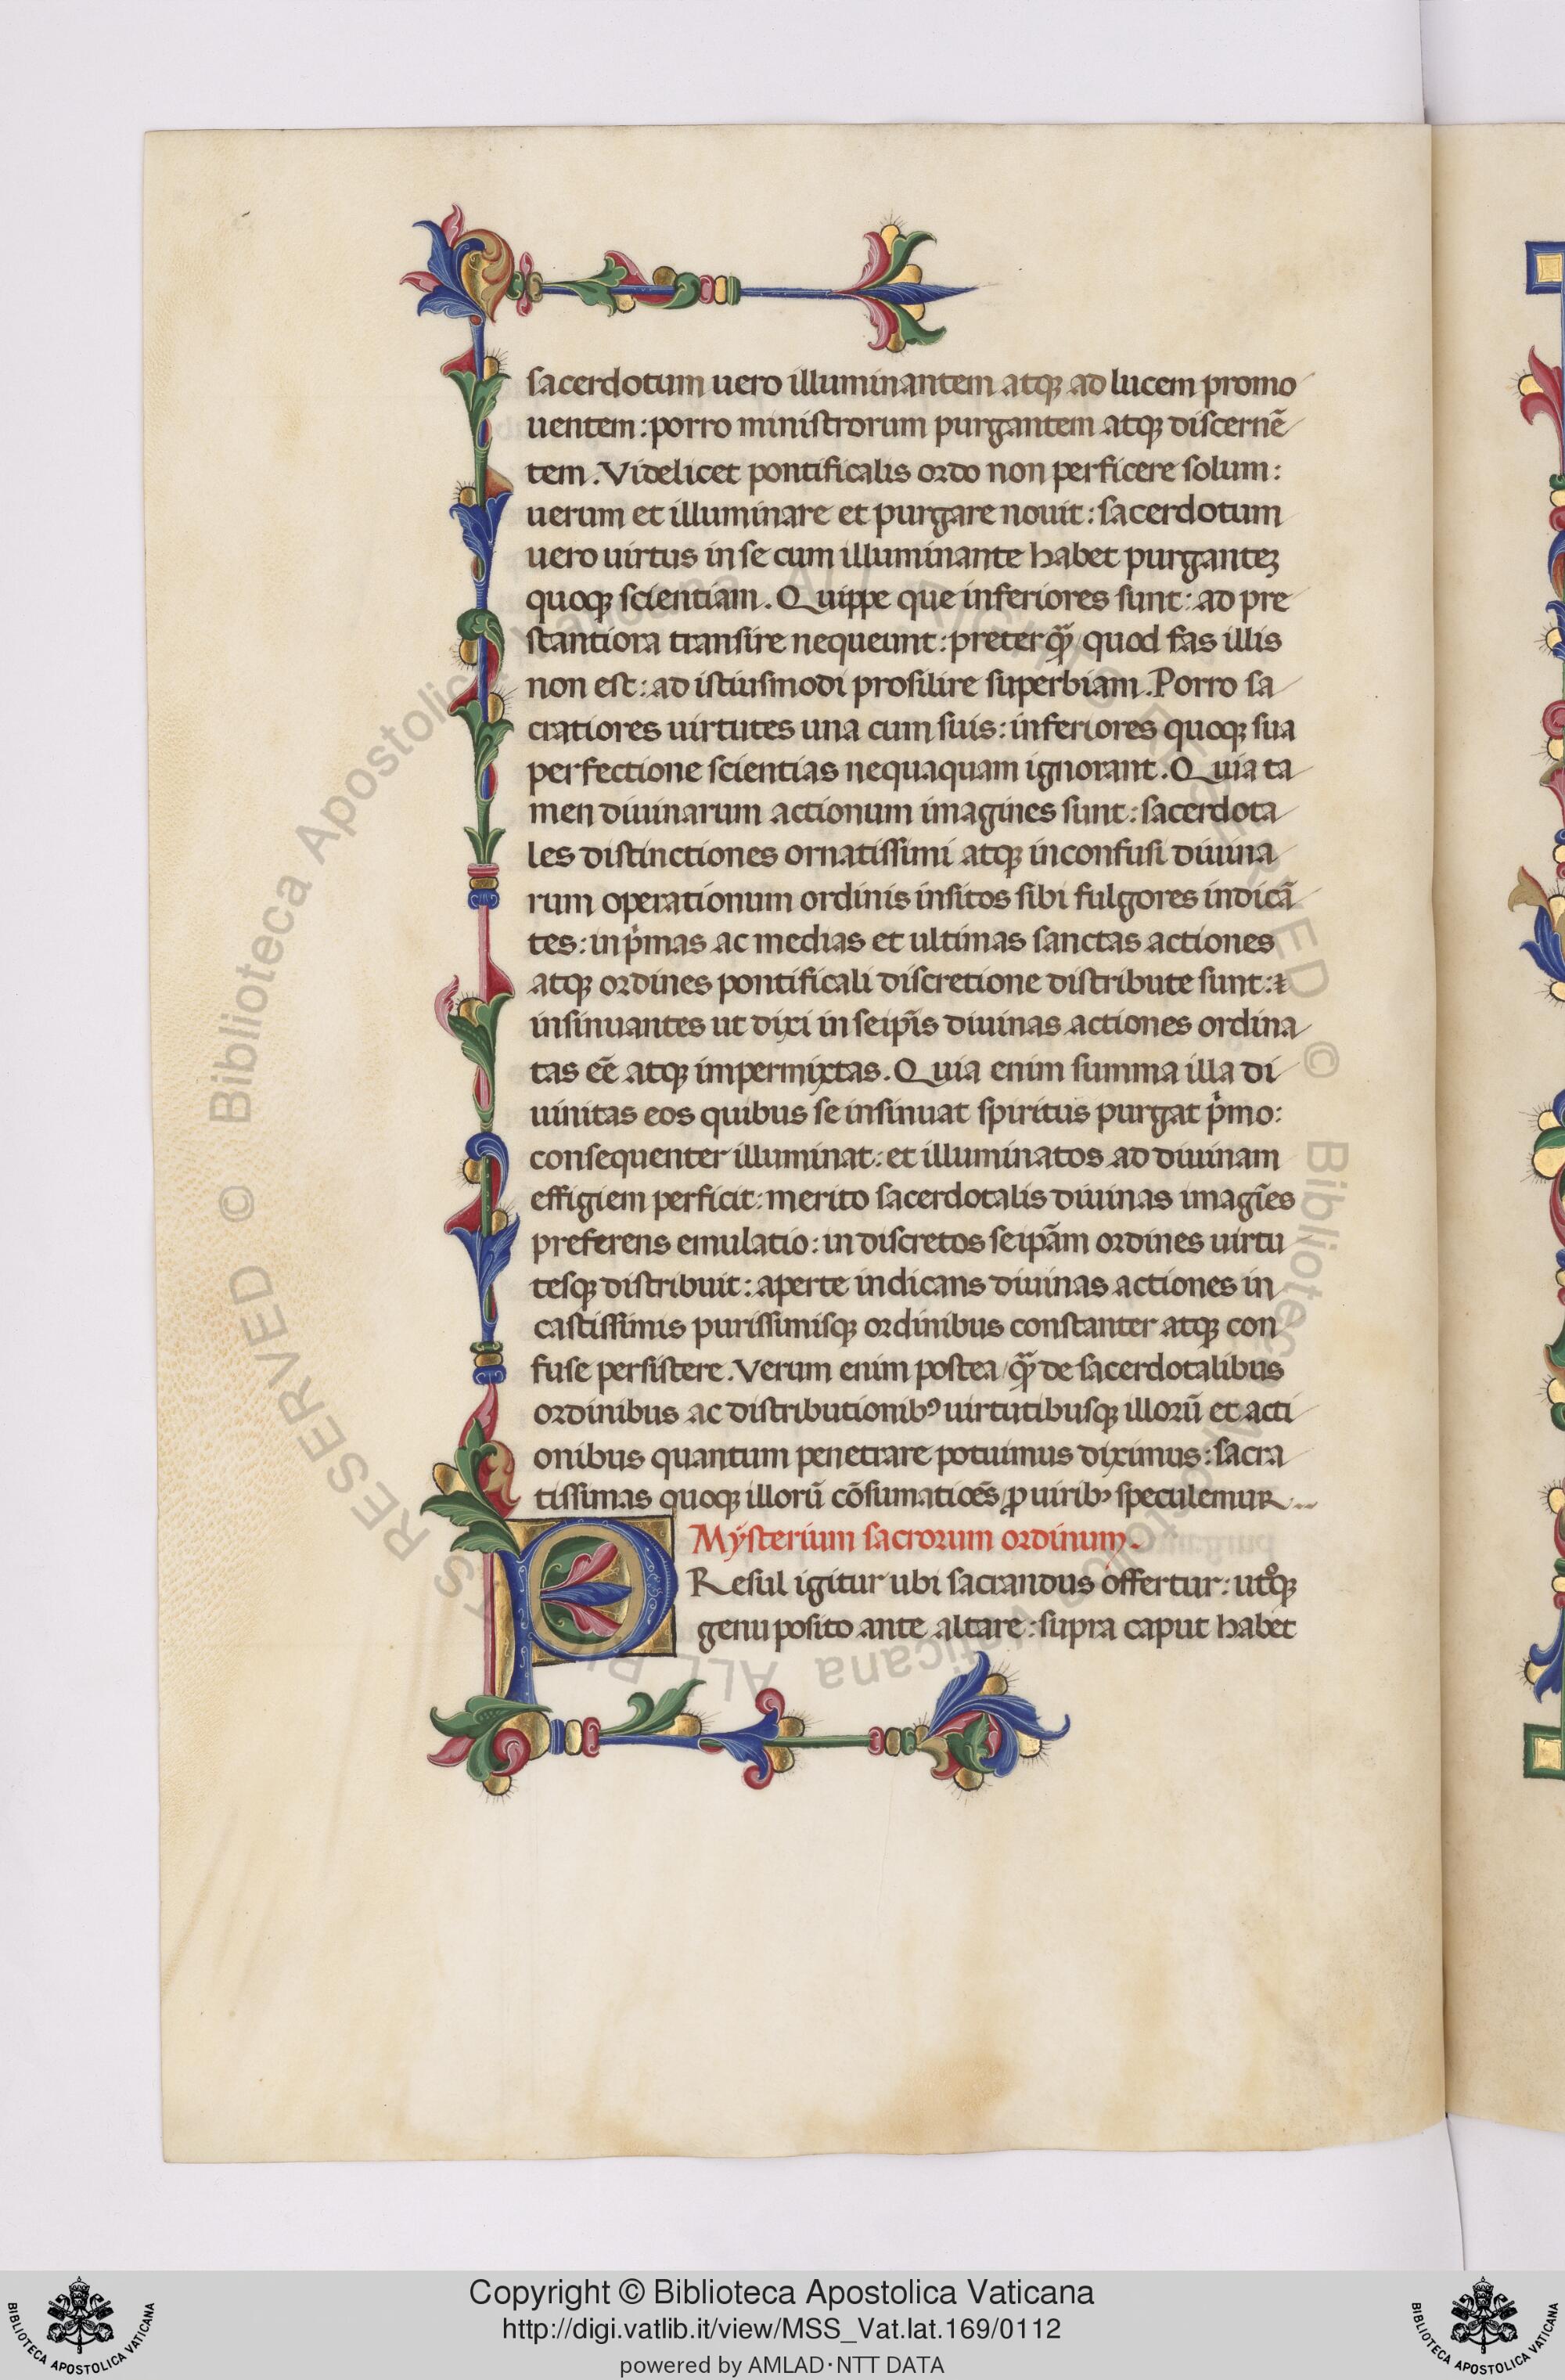 sacerdotum uero illuminantem atqꝫ ad lucem promo
uentem: porro ministrorum purgantem atqꝫ discernē
tem. Videlicet pontificalis ordo non perficere solum:
uerum et illuminare et purgare nouit: sacerdotum
uero uirtus in se cum illuminante habet purganteꝫ
quoqꝫ scientiam. Quippe que inferiores sunt: ad pre
stantiora transire nequeunt: preterqꝫ̃ quod fas illis
non est: ad istiusmodi prosilire superbiam. Porro sa
cratiores uirtutes una cum suis: inferiores quoqꝫ sua
perfectione scientias nequaquam ignorant. Quia ta
men diuinarum actionum imagines sunt: sacerdota
les distinctiones ornatissimi atqꝫ inconfusi diuina
rum operationum ordinis insitos sibi fulgores indicā
tes: in pͥmas ac medias et ultimas sanctas actiones
atqꝫ ordines pontificali discretione distribute sunt: ⁊
insinuantes ut dixi in seip̄is diuinas actiones ordina
tas eē atqꝫ impermixtas. Quia enim summa illa di
uinitas eos quibus se insinuat spiritus purgat pͥmo:
consequenter illuminat: et illuminatos ad diuinam
effigiem perficit: merito sacerdotalis diuinas imagīes
preferens emulatio: in discretos seip̄am ordines uirtu
tesqꝫ distribuit: aperte indicans diuinas actiones in
castissimis purissimisqꝫ ordinibus constanter atqꝫ con
fuse persistere. Verum enim postea qꝫ̃ de sacerdotalibus
ordinibus ac distributionibꝰ uirtutibusqꝫ illorū et acti
onibus quantum penetrare potuimus diximus: sacra
tissimas quoqꝫ illorū cōsumatiōes ꝓ uiribꝫ speculemur
Mẏsterium sacrorum ordinum.
PResul igitur ubi sacrandus offertur: utͦqꝫ
genu posito ante altare: supra caput habet
Copyright © Biblioteca Apostolica Vaticana
http://digi.vatlib.it/view/MSS_Vat.lat.169/0112
powered by AMLAD·NTT DATA
BIBLIOTECA APOSTOLICA VATICANA
BIBLIOTECA APOSTOLICA VATICANA
© Biblioteca Apostolica Vaticana ALL RIGHTS RESERVED
© Biblioteca Apostolica Vaticana ALL RIGHTS RESERVED